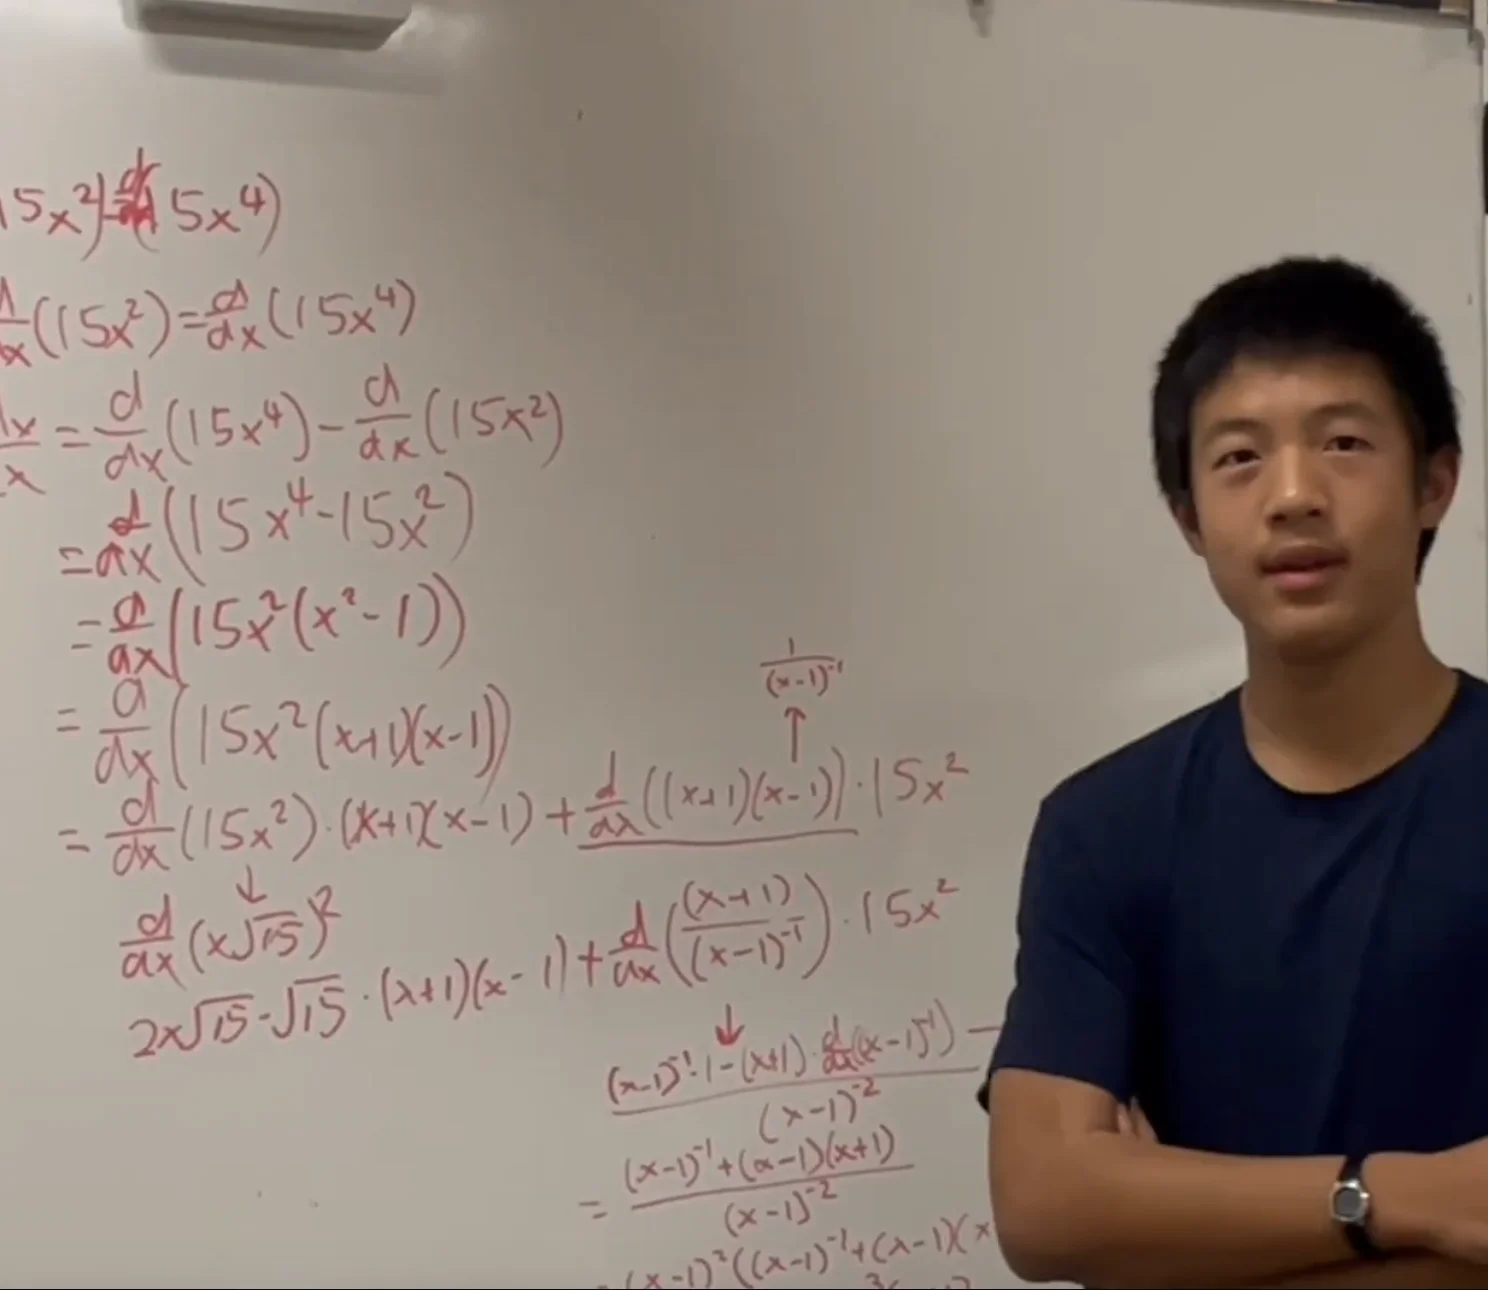 15x²) = d/dx (15x⁴)
d/dx (15x²) = d/dx (15x⁴)
dx/x = d/dx (15x⁴) - d/dx (15x²)
= d/dx (15x⁴-15x²)
= d/dx (15x²(x²-1))
= d/dx (15x²(x+1)(x-1))
1/(x-1)⁻¹
↑
= d/dx (15x²)·(x+1)(x-1) + d/dx ((x+1)(x-1))·15x²
↓
d/dx (x√15)²
2x√15-√15·(x+1)(x-1) + d/dx ((x+1)/(x-1)⁻¹)·15x²
↓
(x-1)⁻¹·1-(x+1)·d/dx((x-1)⁻¹) / (x-1)⁻²
= (x-1)⁻¹+(x-1)(x+1) / (x-1)⁻²
= (x-1)²((x-1)⁻¹+(x-1)(x